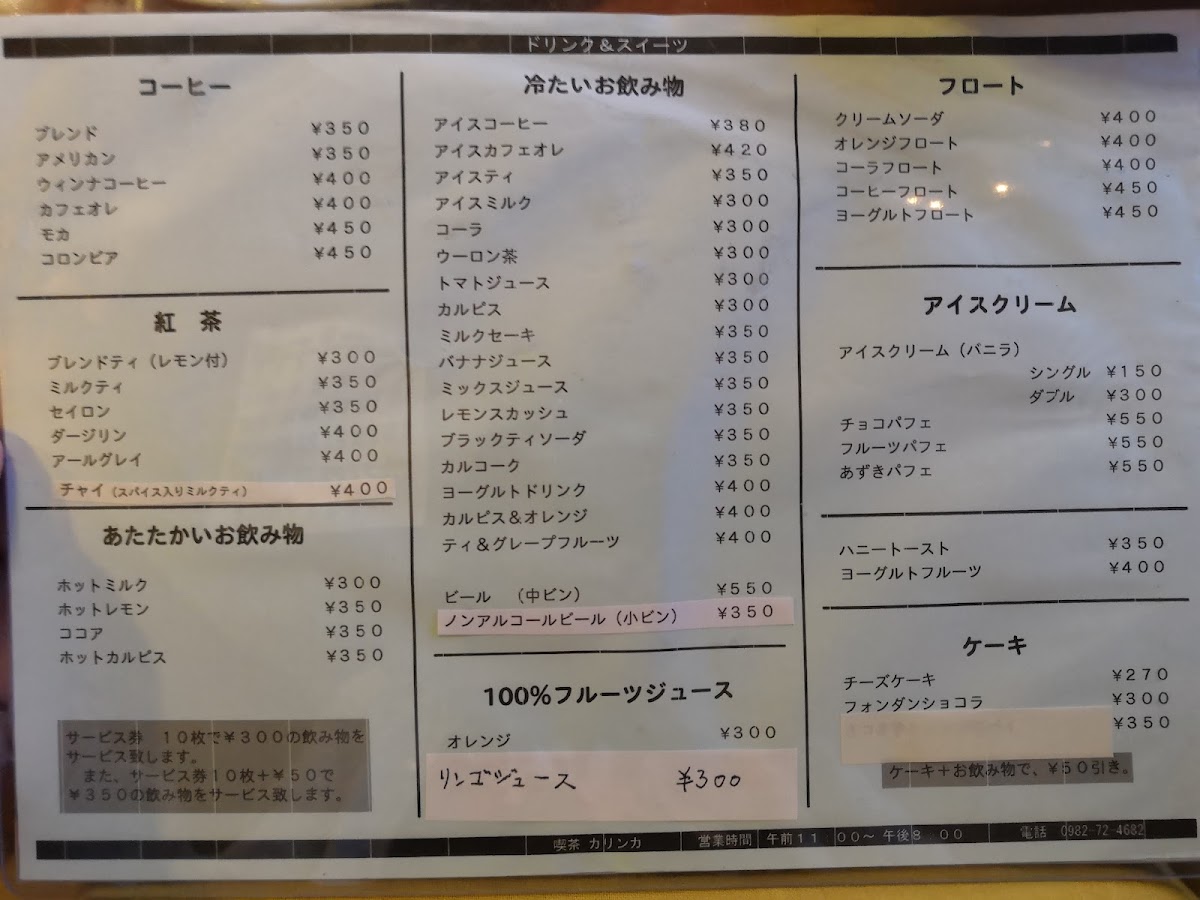 ドリンク＆スイーツ
コーヒー
ブレンド ￥350
アメリカン ￥350
ウィンナコーヒー ￥400
カフェオレ ￥400
モカ ￥450
コロンビア ￥450
紅 茶
ブレンドティ（レモン付） ￥300
ミルクティ ￥350
セイロン ￥350
ダージリン ￥400
アールグレイ ￥400
チャイ（スパイス入りミルクティ） ￥400
あたたかいお飲み物
ホットミルク ￥300
ホットレモン ￥350
ココア ￥350
ホットカルピス ￥350
サービス券 10枚で￥300の飲み物を
サービス致します。
また、サービス券10枚＋￥50で
￥350の飲み物をサービス致します。
冷たいお飲み物
アイスコーヒー ￥380
アイスカフェオレ ￥420
アイスティ ￥350
アイスミルク ￥300
コーラ ￥300
ウーロン茶 ￥300
トマトジュース ￥300
カルピス ￥300
ミルクセーキ ￥350
バナナジュース ￥350
ミックスジュース ￥350
レモンスカッシュ ￥350
ブラックティソーダ ￥350
カルコーク ￥350
ヨーグルトドリンク ￥400
カルピス＆オレンジ ￥400
ティ＆グレープフルーツ ￥400
ビール （中ビン） ￥550
ノンアルコールビール（小ビン） ￥350
100％フルーツジュース
オレンジ ￥300
リンゴジュース ￥300
フロート
クリームソーダ ￥400
オレンジフロート ￥400
コーラフロート ￥400
コーヒーフロート ￥450
ヨーグルトフロート ￥450
アイスクリーム
アイスクリーム（バニラ）
シングル ￥150
ダブル ￥300
チョコパフェ ￥550
フルーツパフェ ￥550
あずきパフェ ￥550
ハニートースト ￥350
ヨーグルトフルーツ ￥400
ケーキ
チーズケーキ ￥270
フォンダンショコラ ￥300
￥350
ケーキ＋お飲み物で、￥50引き。
喫茶 カリンカ 営業時間 午前11 00～午後8 00 電話 0982-72-4682